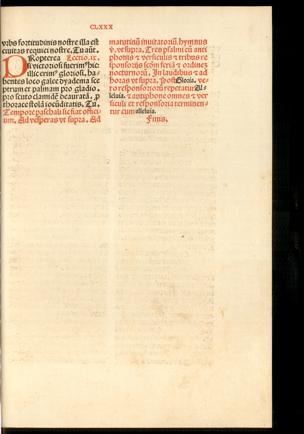 CLXXX
vrbs fortitudinis nostre illa est
ciuitas requiei nostre. Tu aūt.
PRopterea Lectio .ix.
si victoriosi fuerimꝰ hic
illic erimꝰ gloriosi, ha
bentes loco galee dyadema sce
ptrum et palmam pro gladio.
pro scuto clamidē deauratā. ꝓ
thorace stolā iocūditatis. Tu.
Tempore paschali sic fiat offici
um. Ad vesperas vt supra. Ad
matutinū inuitatoriū. hymnus
vt supra. Tres psalmi cū anti
phonis ⁊ versiculis ⁊ tribus re
sponsoriis scdm feriā ⁊ ordinē
nocturnorū. In laudibus ⁊ ad
horas vt supra. Post Gloria.
ro responsoriorū repetatur Al-
leluia. ⁊ antiphone omnes ⁊ ver
siculi et responsoria terminen-
tur cum alleluia.
Finis.